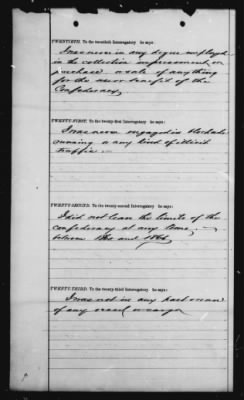 TWENTIETH. To the twentieth Interrogatory he says:
I was never in any degree employed
in the collection impressment or
purchase or sale of anything
for the use or benefit of the
Confederacy.
TWENTY-FIRST. To the twenty-first Interrogatory he says:
I was never engaged in blockade
running or any kind of illicit
traffic.
TWENTY-SECOND. To the twenty-second Interrogatory he says:
I did not leave the limits of the
confederacy at any time,
between 1861 and 1865,
TWENTY-THIRD. To the twenty-third Interrogatory he says:
I was not in any part owner
of any vessel or cargo